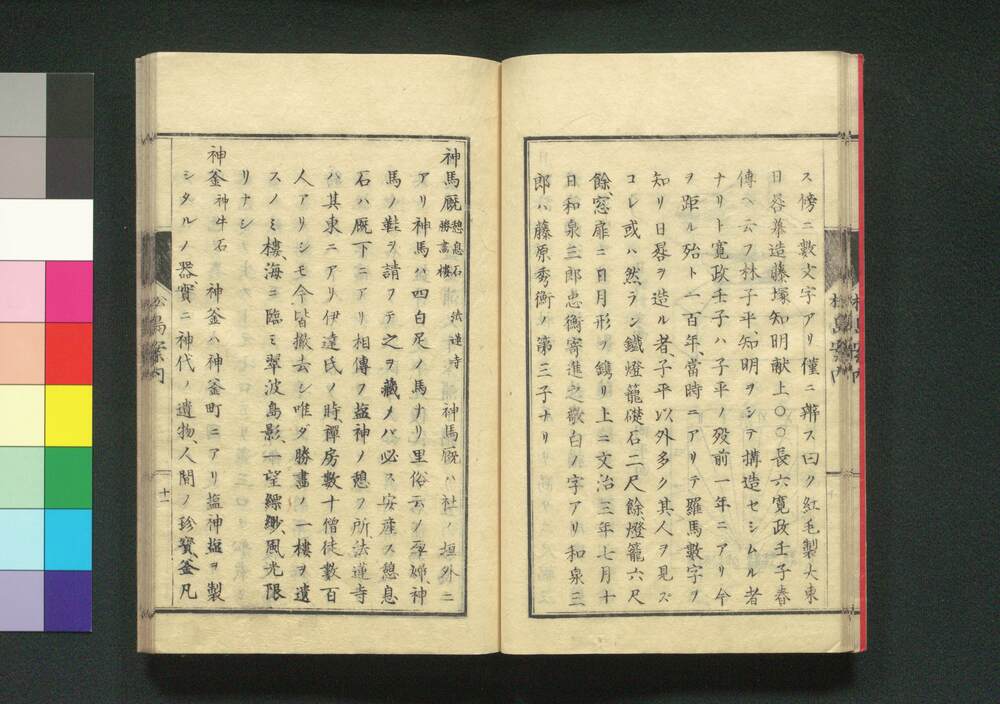 ス傍ニ數文字アリ僅ニ辨ス曰ク紅毛製大東
日晷摹造藤塚知明献上〇〇長六寛政壬子春
傳ヘ云フ林子平、知明ヲシテ搆造セシムル者
ナリト寛政壬子ハ、子平ノ歿前一年ニアリ今
ヲ距ル殆ト一百年、當時ニアリテ羅馬數字ヲ
知リ日晷ヲ造ル者、子平以外多ク其人ヲ見ズ
コレ或ハ然ラン鐵燈籠礎石二尺餘燈籠六尺
餘、窓扉ニ日月形ヲ鐫リ上ニ文治三年七月十
日和泉三郎忠衡寄進之敬白ノ字アリ和泉三
郎ハ藤原秀衡ノ第三子ナリ
神馬厩 憩息石 法蓮寺 勝畵樓 神馬厩ハ社ノ垣外ニ
アリ神馬ハ四白足ノ馬ナリ里俗云フ孕婦神
馬ノ鞋ヲ請フテ之ヲ藏メバ必ス安産ス憩息
石ハ厩下ニアリ相傳フ塩神ノ憩フ所、法蓮寺
ハ其東ニアリ伊達氏ノ時、禪房數十僧徒數百
人アリシモ今皆撤去シ唯タ勝畵ノ一樓ヲ遺
スノミ樓、海ニ臨ミ翠波島影、一望縹緲、風光限
リナシ
神釜 神牛石 神釜ハ神釜町ニアリ塩神塩ヲ製
シタルノ器、實ニ神代ノ遺物、人間ノ珍寳釜凡
松島案内
十一
松島案内